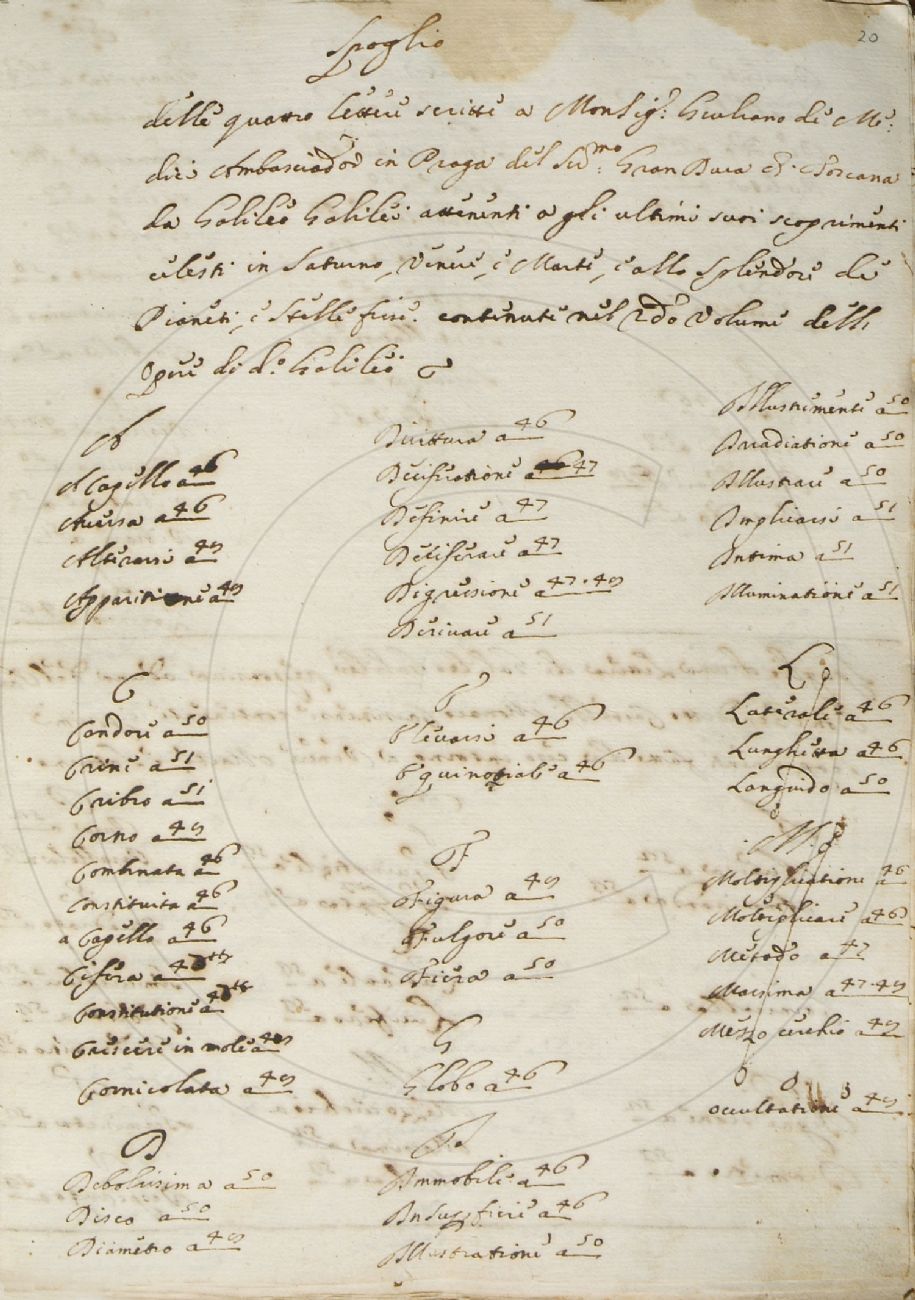 20
Spoglio
delle quattro lettere scritte a Monsig.r Giuliano de Me:
dici Ambasciadore in Praga del Ser:mo Gran Duca di Toscana
da Galileo Galilei attenenti a gli ultimi suoi scoprimenti
celesti in Saturno, Venere, e Marte, e allo splendore de
Pianeti, e Stelle fisse. contenute nel 2do Volume dell
Opere di d.o Galilei
A
A Capello a 46
Aversa a 46
Alterarsi a 49
Apparitione a 49
C
Candore a 50
Crine a 51
Cribro a 51
Corno a 49
Combinata a 46
Constituita a 46
a Capello a 46
Cifera a 47
Constitutione a
Crescere in mole a 49
Cornicolata a 49
D
Debolissima a 50
Disco a 50
Diametro a 49
Dirittura a 46
Deciferatione a 47
Definire a 47
Deciferare a 47
Digressione a 47. 49
Derivare a 51
E
Elevarsi a 46
Equinotiale a 46
F
Figura a 49
Fulgore a 50
Fiera a 50
G
Globo a 46
I
Immobile a 46
In superficie a 46
Illustratione a 50
Illustrimente a 50
Iradiatione a 50
Illustrare a 50
Implicarsi a 51
Intima a 51
Illuminatione a 51
L
Laterale a 46
Lunghetta a 46
Languido a 50
M
Moltiplicatione a 46
Moltiplicare a 46
Metodo a 47
Massima a 47. 49
Mezzo cerchio a 49
O
occultatione a 49